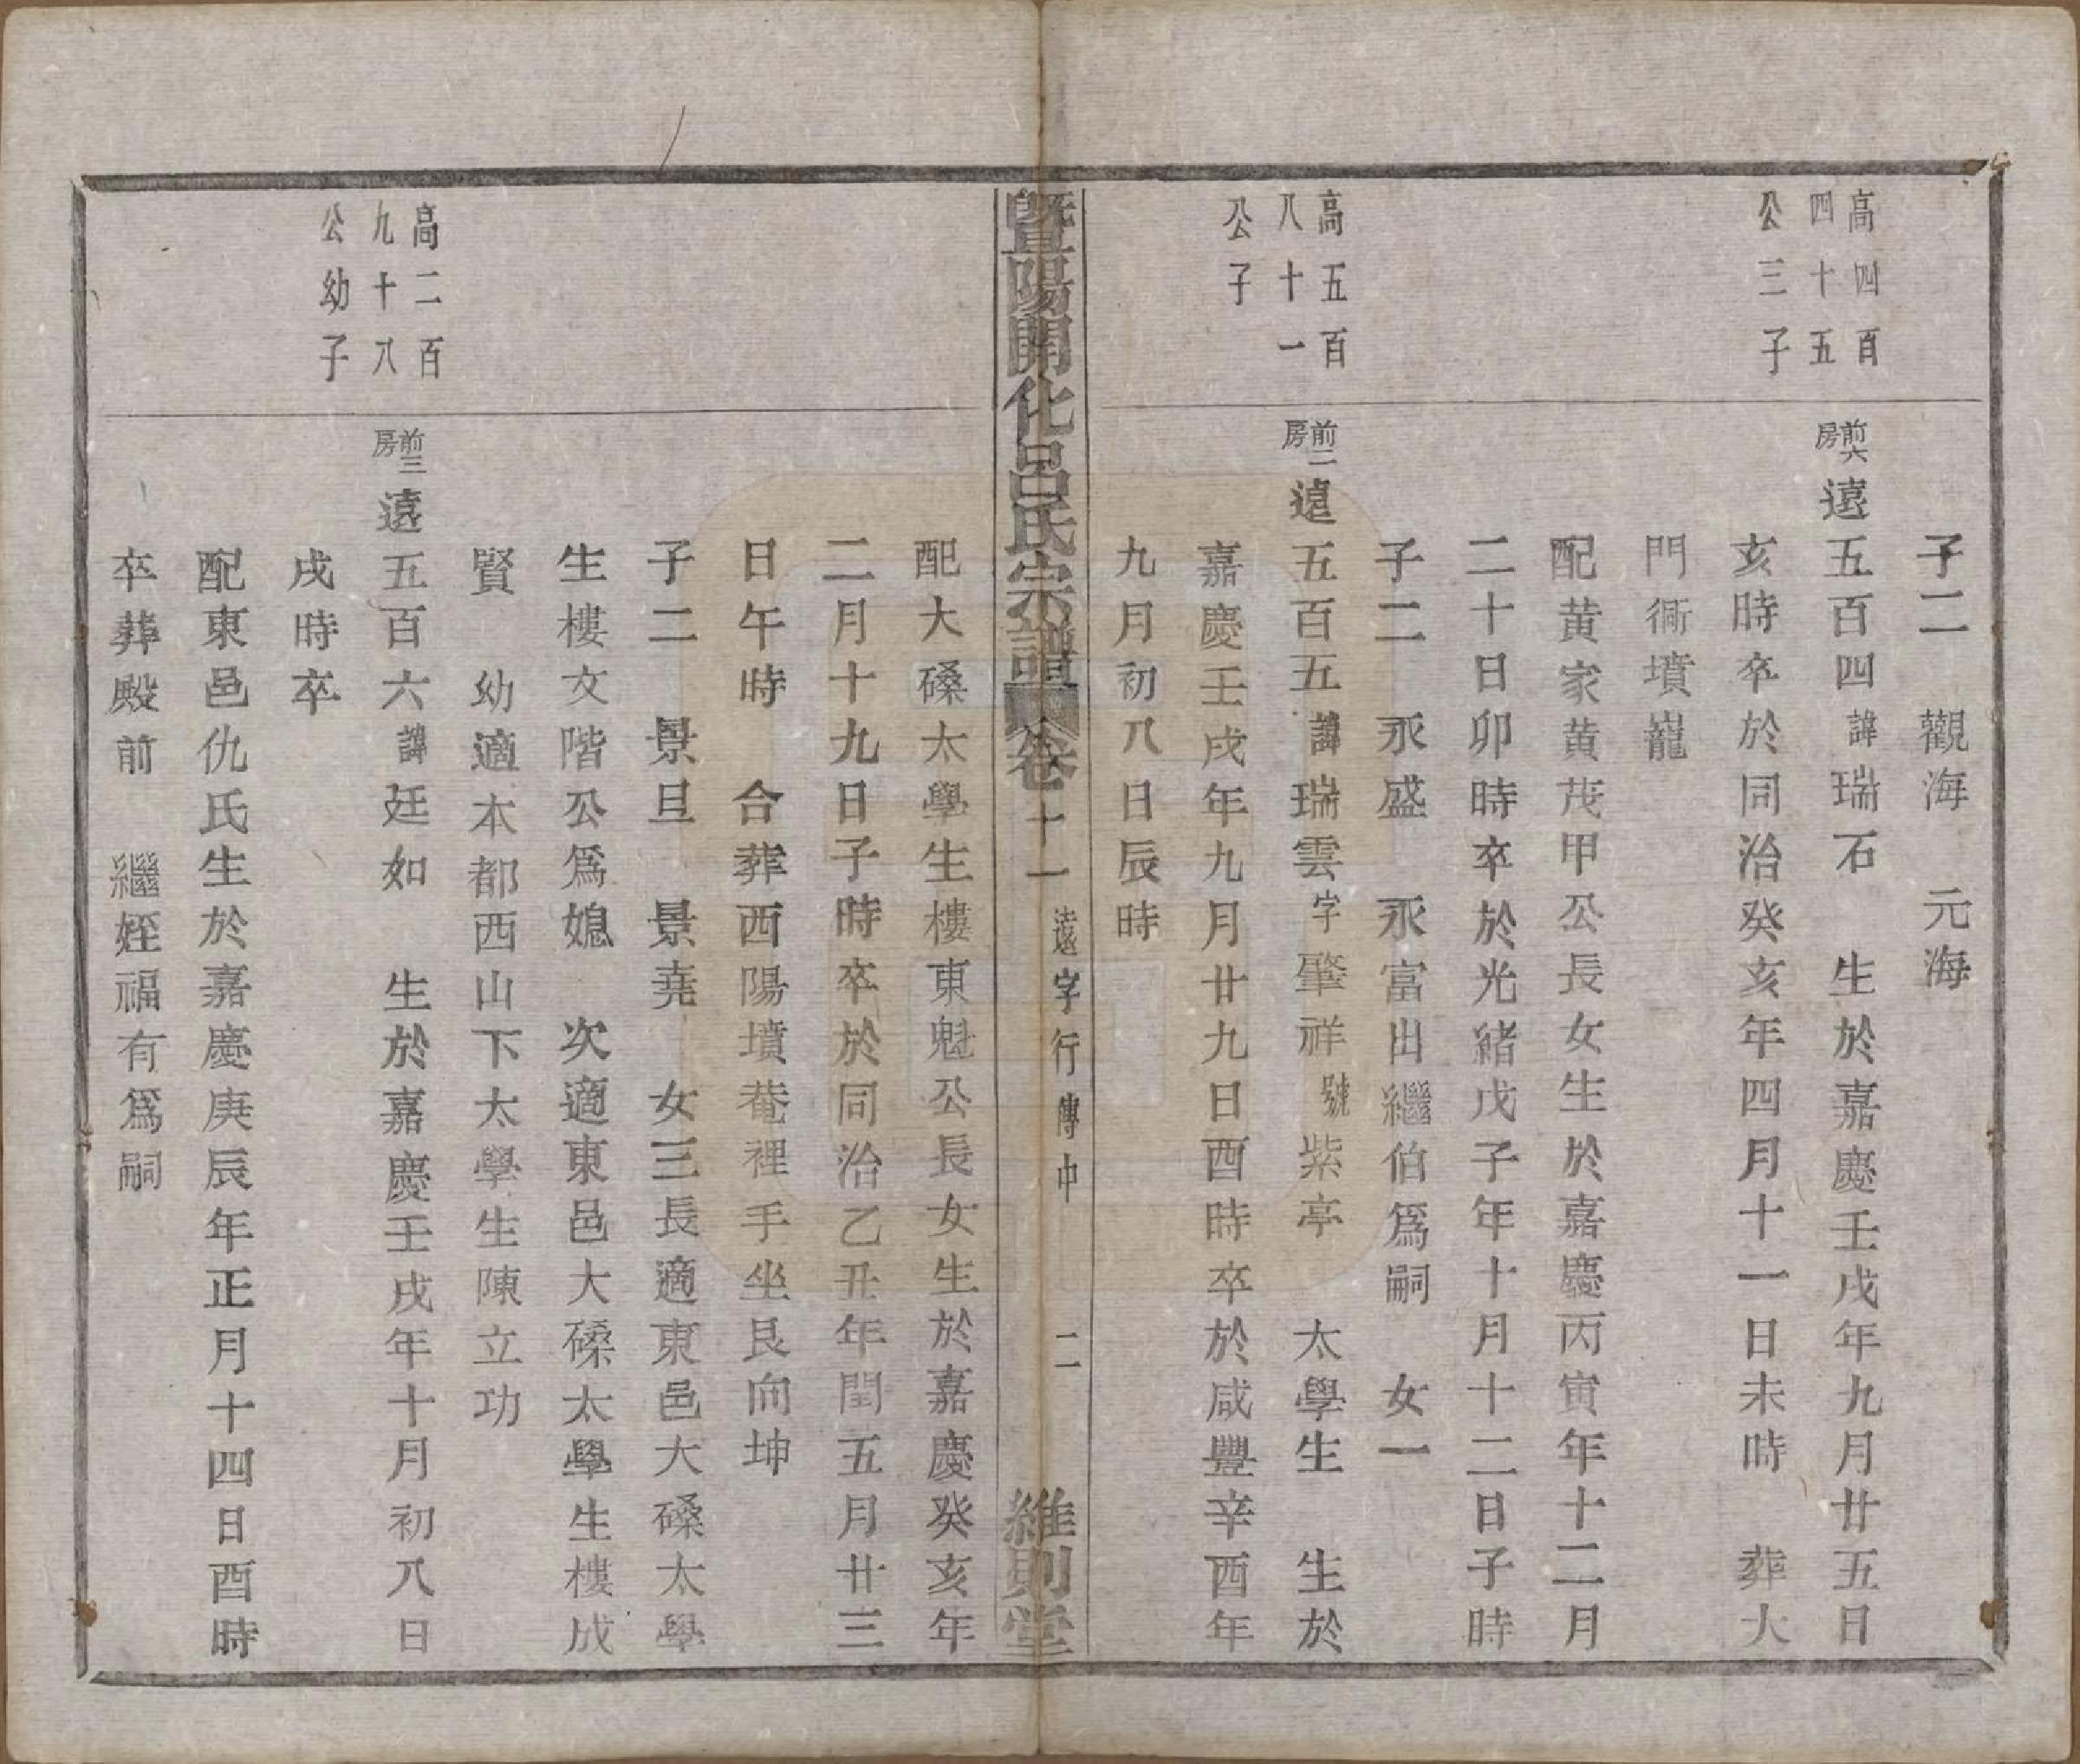 子二 觀海 元海
高四百
四十五
公三子
前六房
遠五百四諱瑞石 生於嘉慶壬戌年九月廿五日
亥時卒於同治癸亥年四月十一日未時 葬大
門衕墳巃
配黄家黄茂甲公長女生於嘉慶丙寅年十二月
二十日卯時卒於光緒戊子年十月十二日子時
子二 永盛 永富出繼伯爲嗣 女一
高五百
八十一
公子
前二房
遠五百五諱瑞雲字肇祥號紫亭 太學生 生於
嘉慶壬戌年九月廿九日酉時卒於咸豐辛酉年
九月初八日辰時
暨陽開化呂氏宗譜 卷十一 遠字行傳中 二 維則堂
配大磉太學生樓東魁公長女生於嘉慶癸亥年
二月十九日子時卒於同治乙丑年閏五月廿三
日午時 合葬西陽墳菴裡手坐艮向坤
子二 景旦 景堯 女三長適東邑大磉太學
生樓文階公爲媳 次適東邑大磉太學生樓成
賢 幼適本都西山下太學生陳立功
高二百
九十八
公幼子
前三房
遠五百六諱廷如 生於嘉慶壬戌年十月初八日
戌時卒
配東邑仇氏生於嘉慶庚辰年正月十四日酉時
卒葬殿前 繼姪福有爲嗣